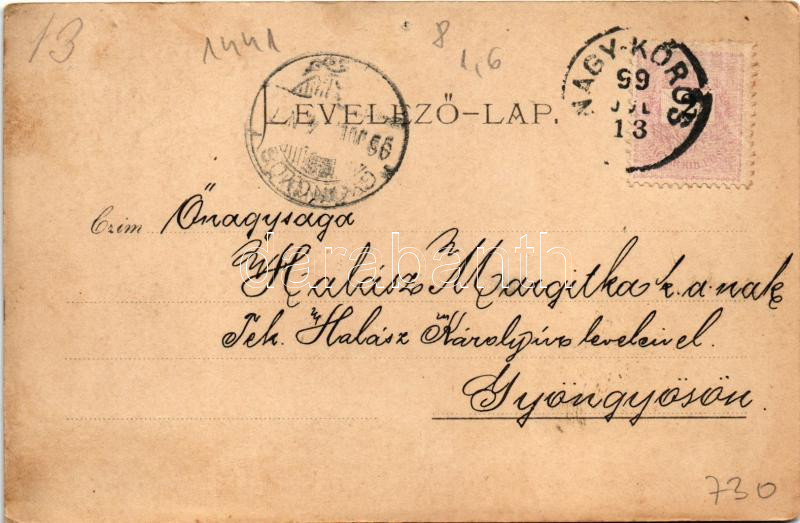 13
1441
8
1,6
NAGY-KŐRÖS
99
JUL
13
LEVELEZŐ-LAP.
GYÖNGYÖS
99 JUL
Czim Őnagysága
Halász Margitka k. a. nak
Tek. Halász Károly úr b leveleivel.
Gyöngyösön.
darabanth
730